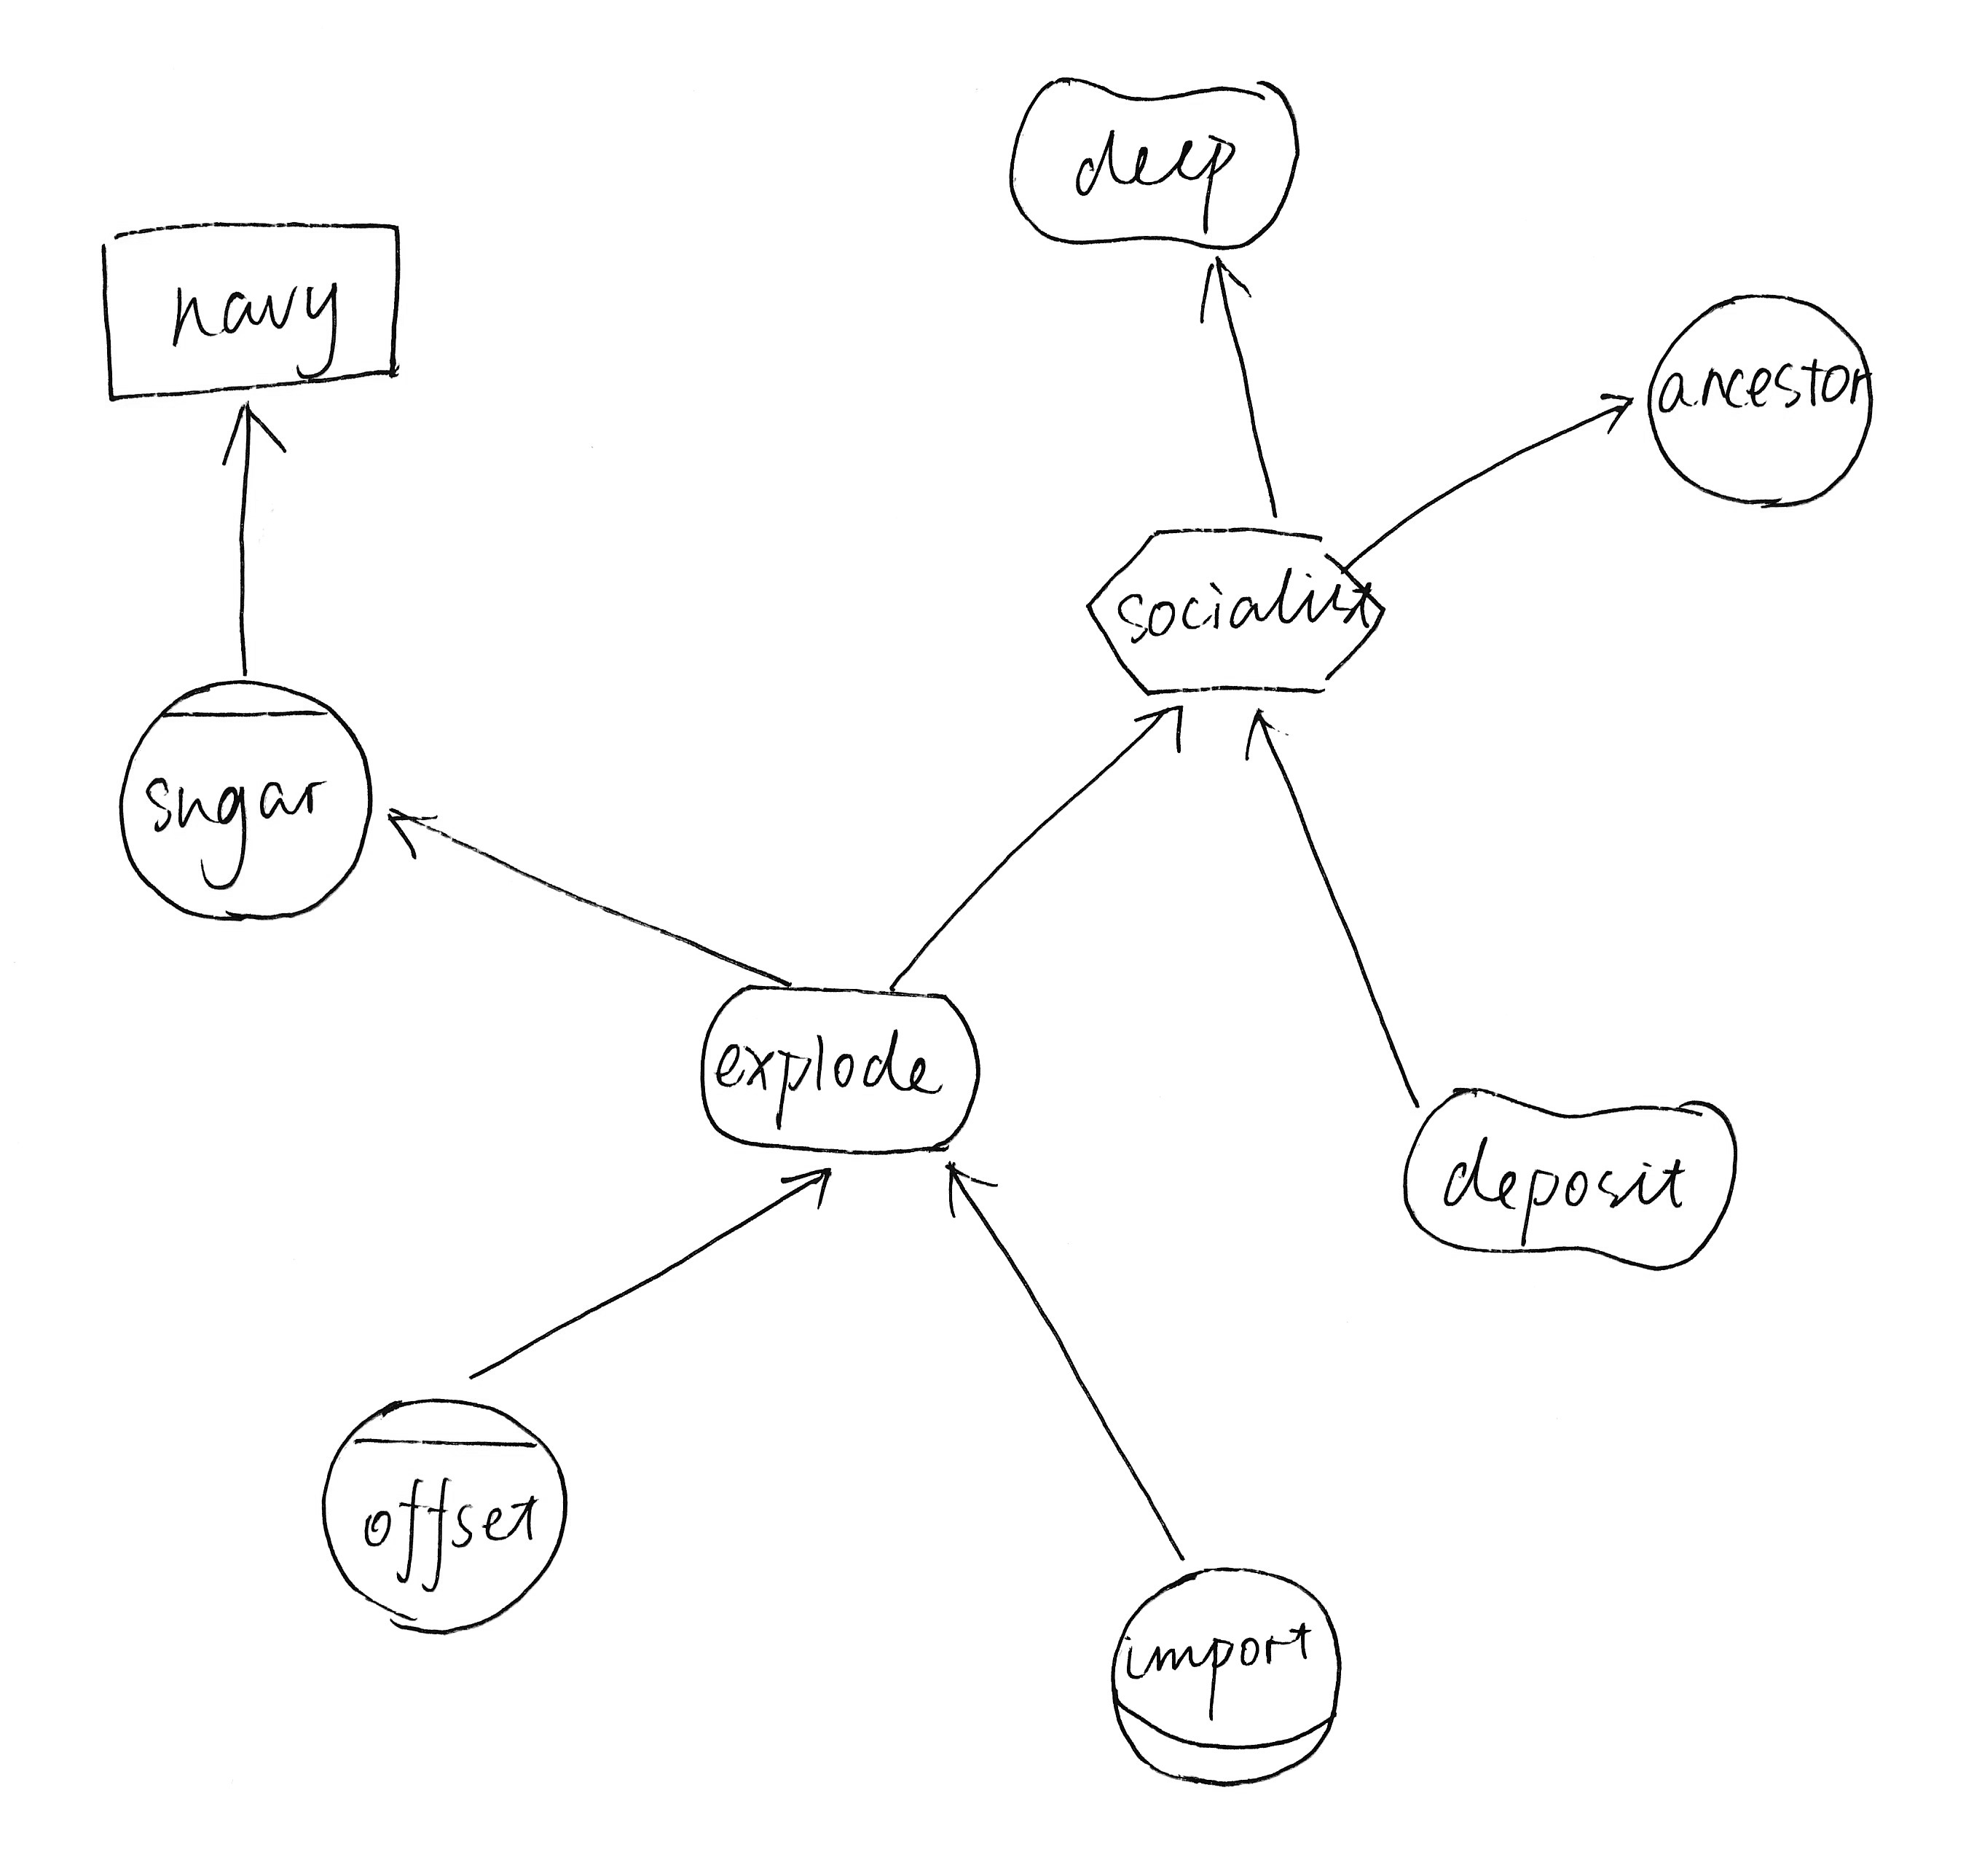 deep
navy
ancestor
socialist
sugar
explode
deposit
offset
import